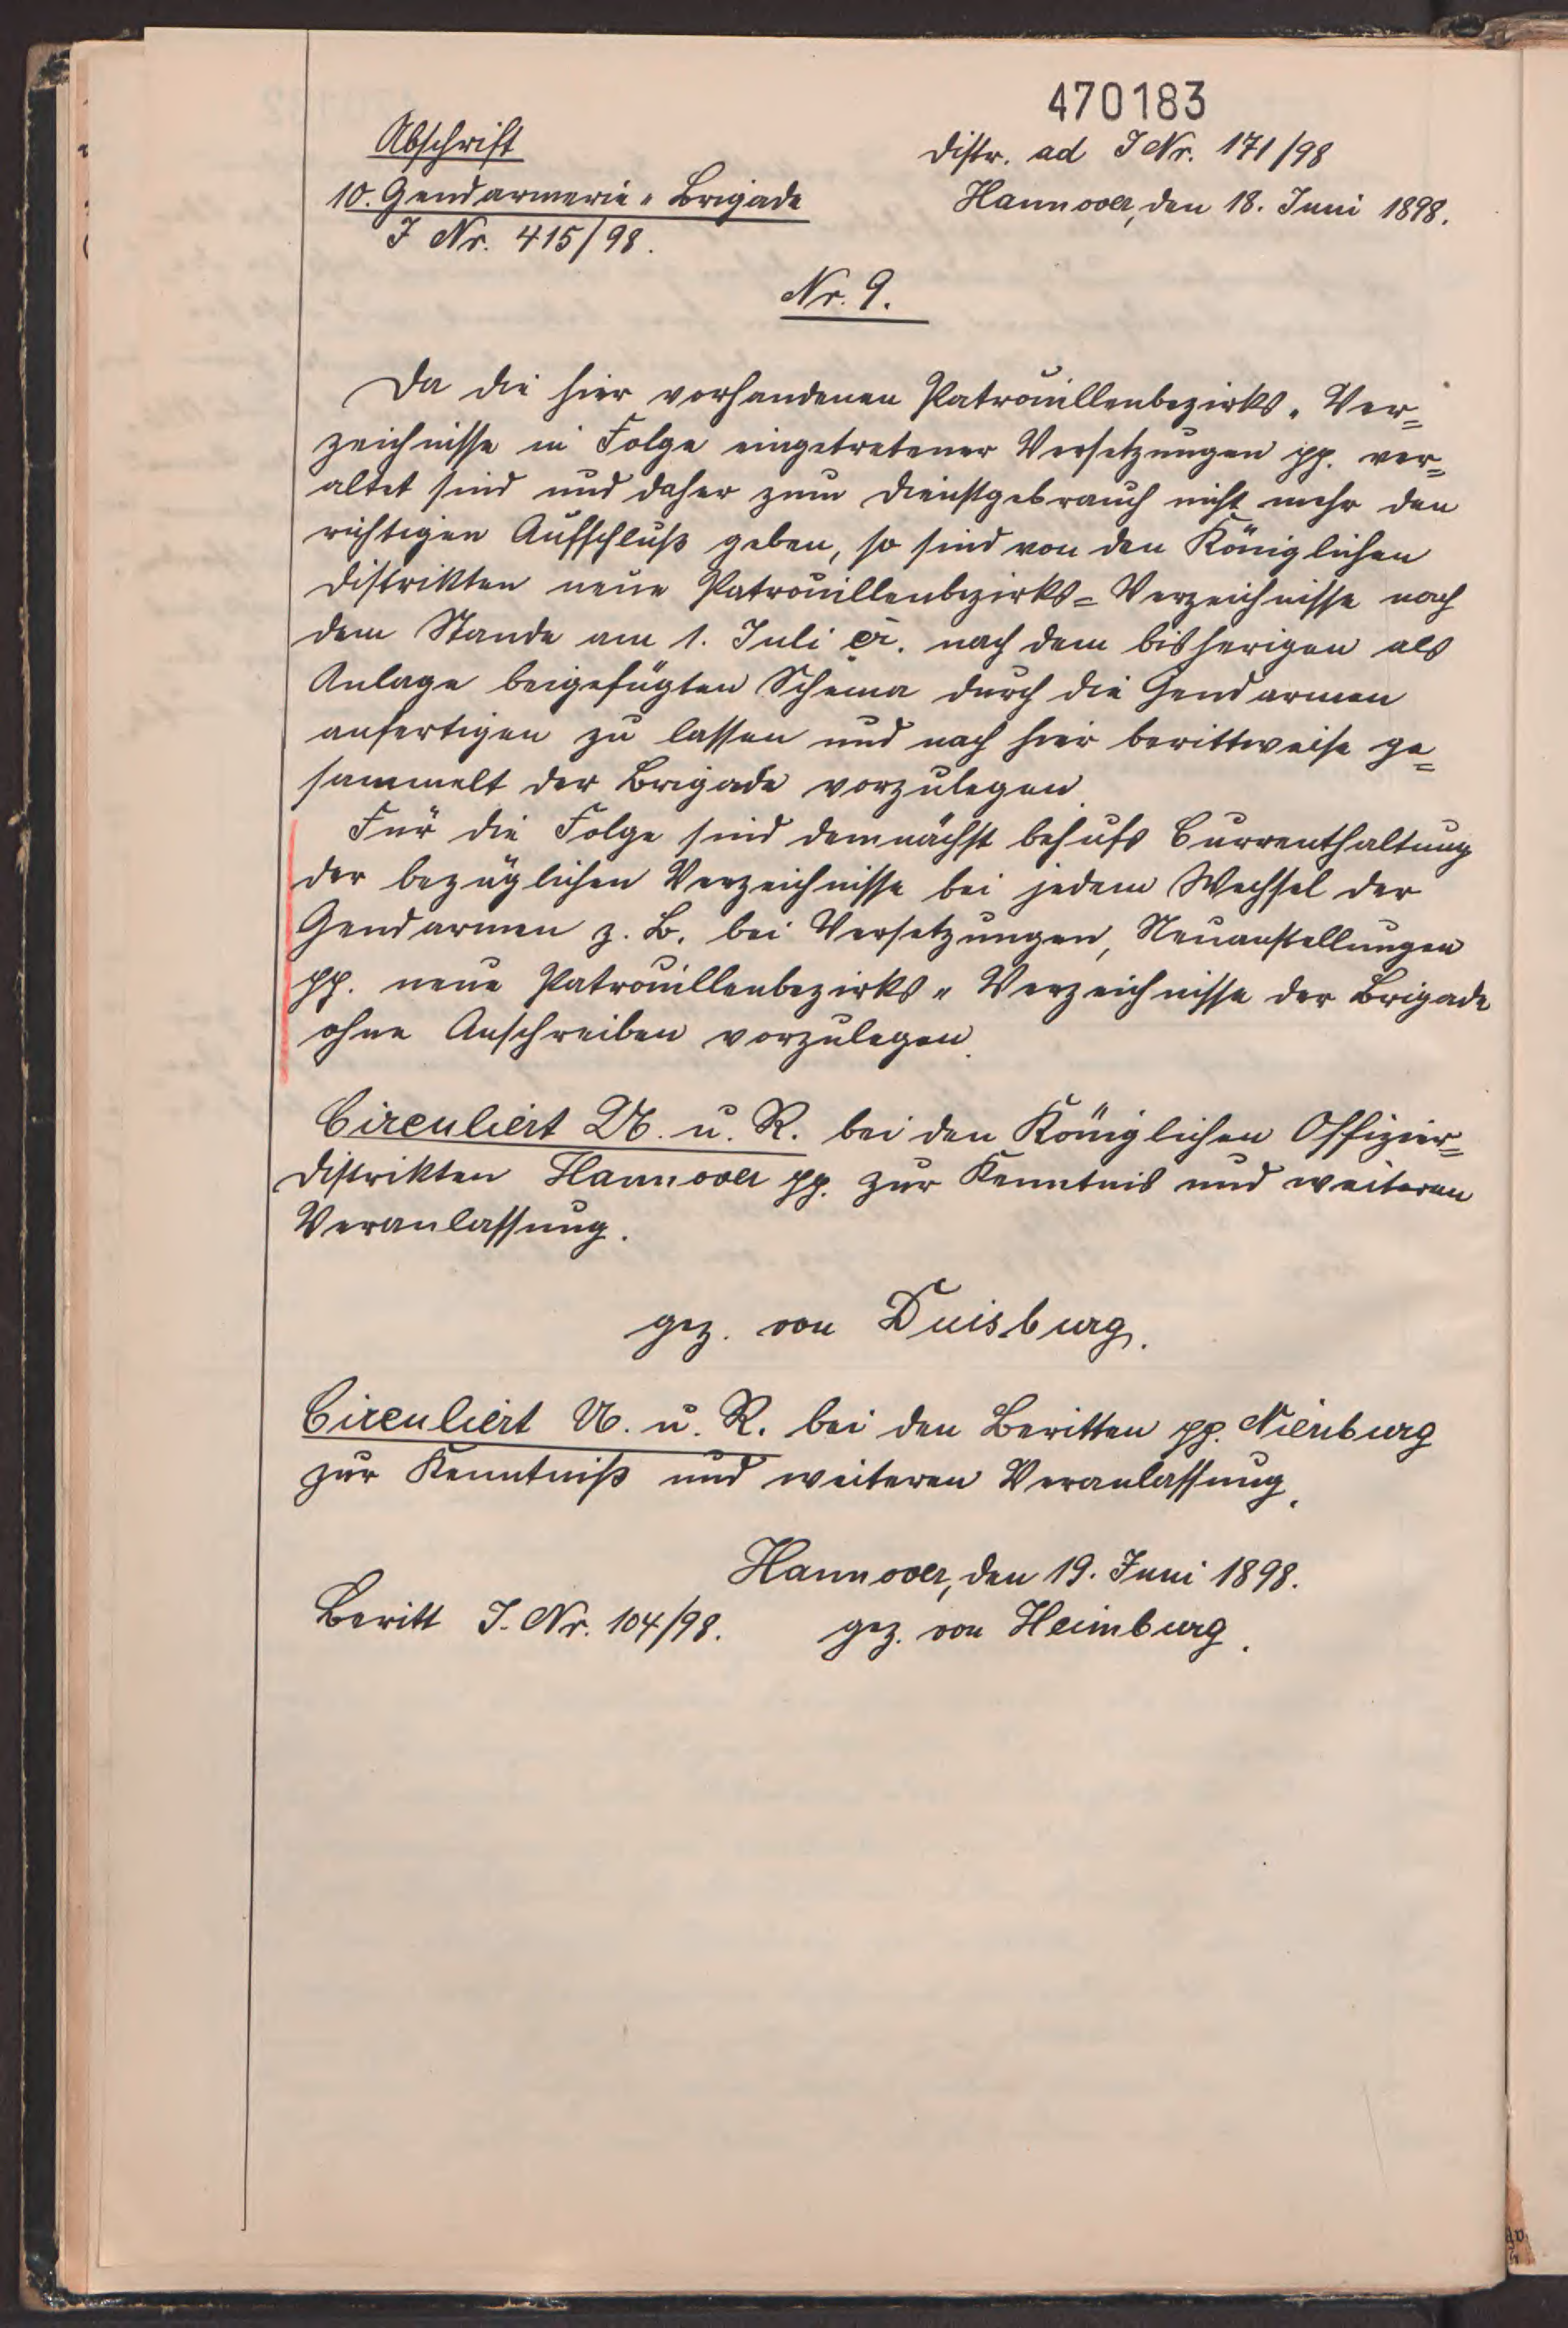 470183
Abschrift
Distr. ad J Nr. 171/98
10. Gendarmerie-Brigade
Hannover, den 18. Juni 1898.
J Nr. 415/98.
Nr. 9.
Da die hier vorhandenen Patrouillenbezirks-Ver=
zeichnisse in Folge eingetretener Versetzungen pp. ver=
altet sind und daher zum Dienstgebrauch nicht mehr den
richtigen Aufschluß geben, so sind von den Königlichen
Distrikten neue Patrouillenbezirks=Verzeichnisse nach
dem Stande am 1. Juli cr. nach dem bisherigen als
Anlage beigefügten Schema durch die Gendarmen
anfertigen zu lassen und nach hier berittweise ge=
sammelt der Brigade vorzulegen.
Für die Folge sind demnächst behufs Currenthaltung
der bezüglichen Verzeichnisse bei jedem Wechsel der
Gendarmen z. B. bei Versetzungen, Neuanstellungen
pp. neue Patrouillenbezirks-Verzeichnisse der Brigade
ohne Anschreiben vorzulegen.
Circuliert U. u. R. bei den Königlichen Offizier=
distrikten Hannover pp. zur Kenntnis und weiteren
Veranlassung.
gez. von Duisburg.
Circuliert U. u. R. bei den Beritten pp. Nienburg
zur Kenntniß und weiteren Veranlassung.
Hannover, den 19. Juni 1898.
Beritt J. Nr. 104/98. gez. von Heimburg.